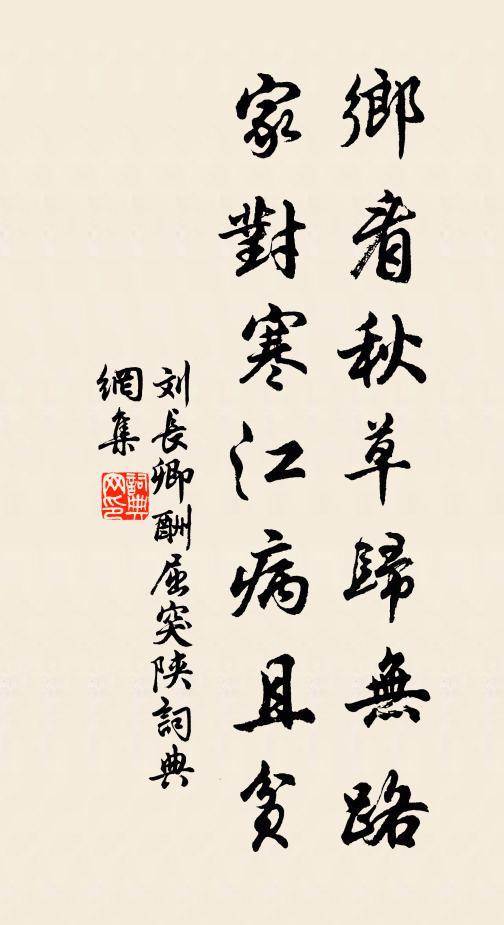 鄉看秋草歸無路
家對寒江病且貧
刘長卿酬屈突陝詞典
網集
詞典
网印